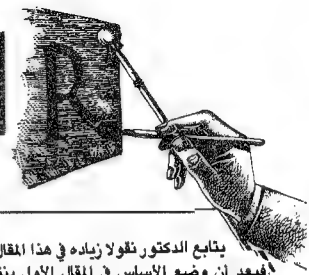 R
يتابع الدكتور نقولا زياده في هذا المقال
فبعد أن وضع الأساس في المقال الأول ينتقـ